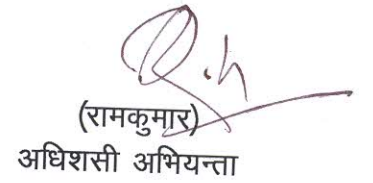 (रामकुमार)
अधिशसी अभियन्ता